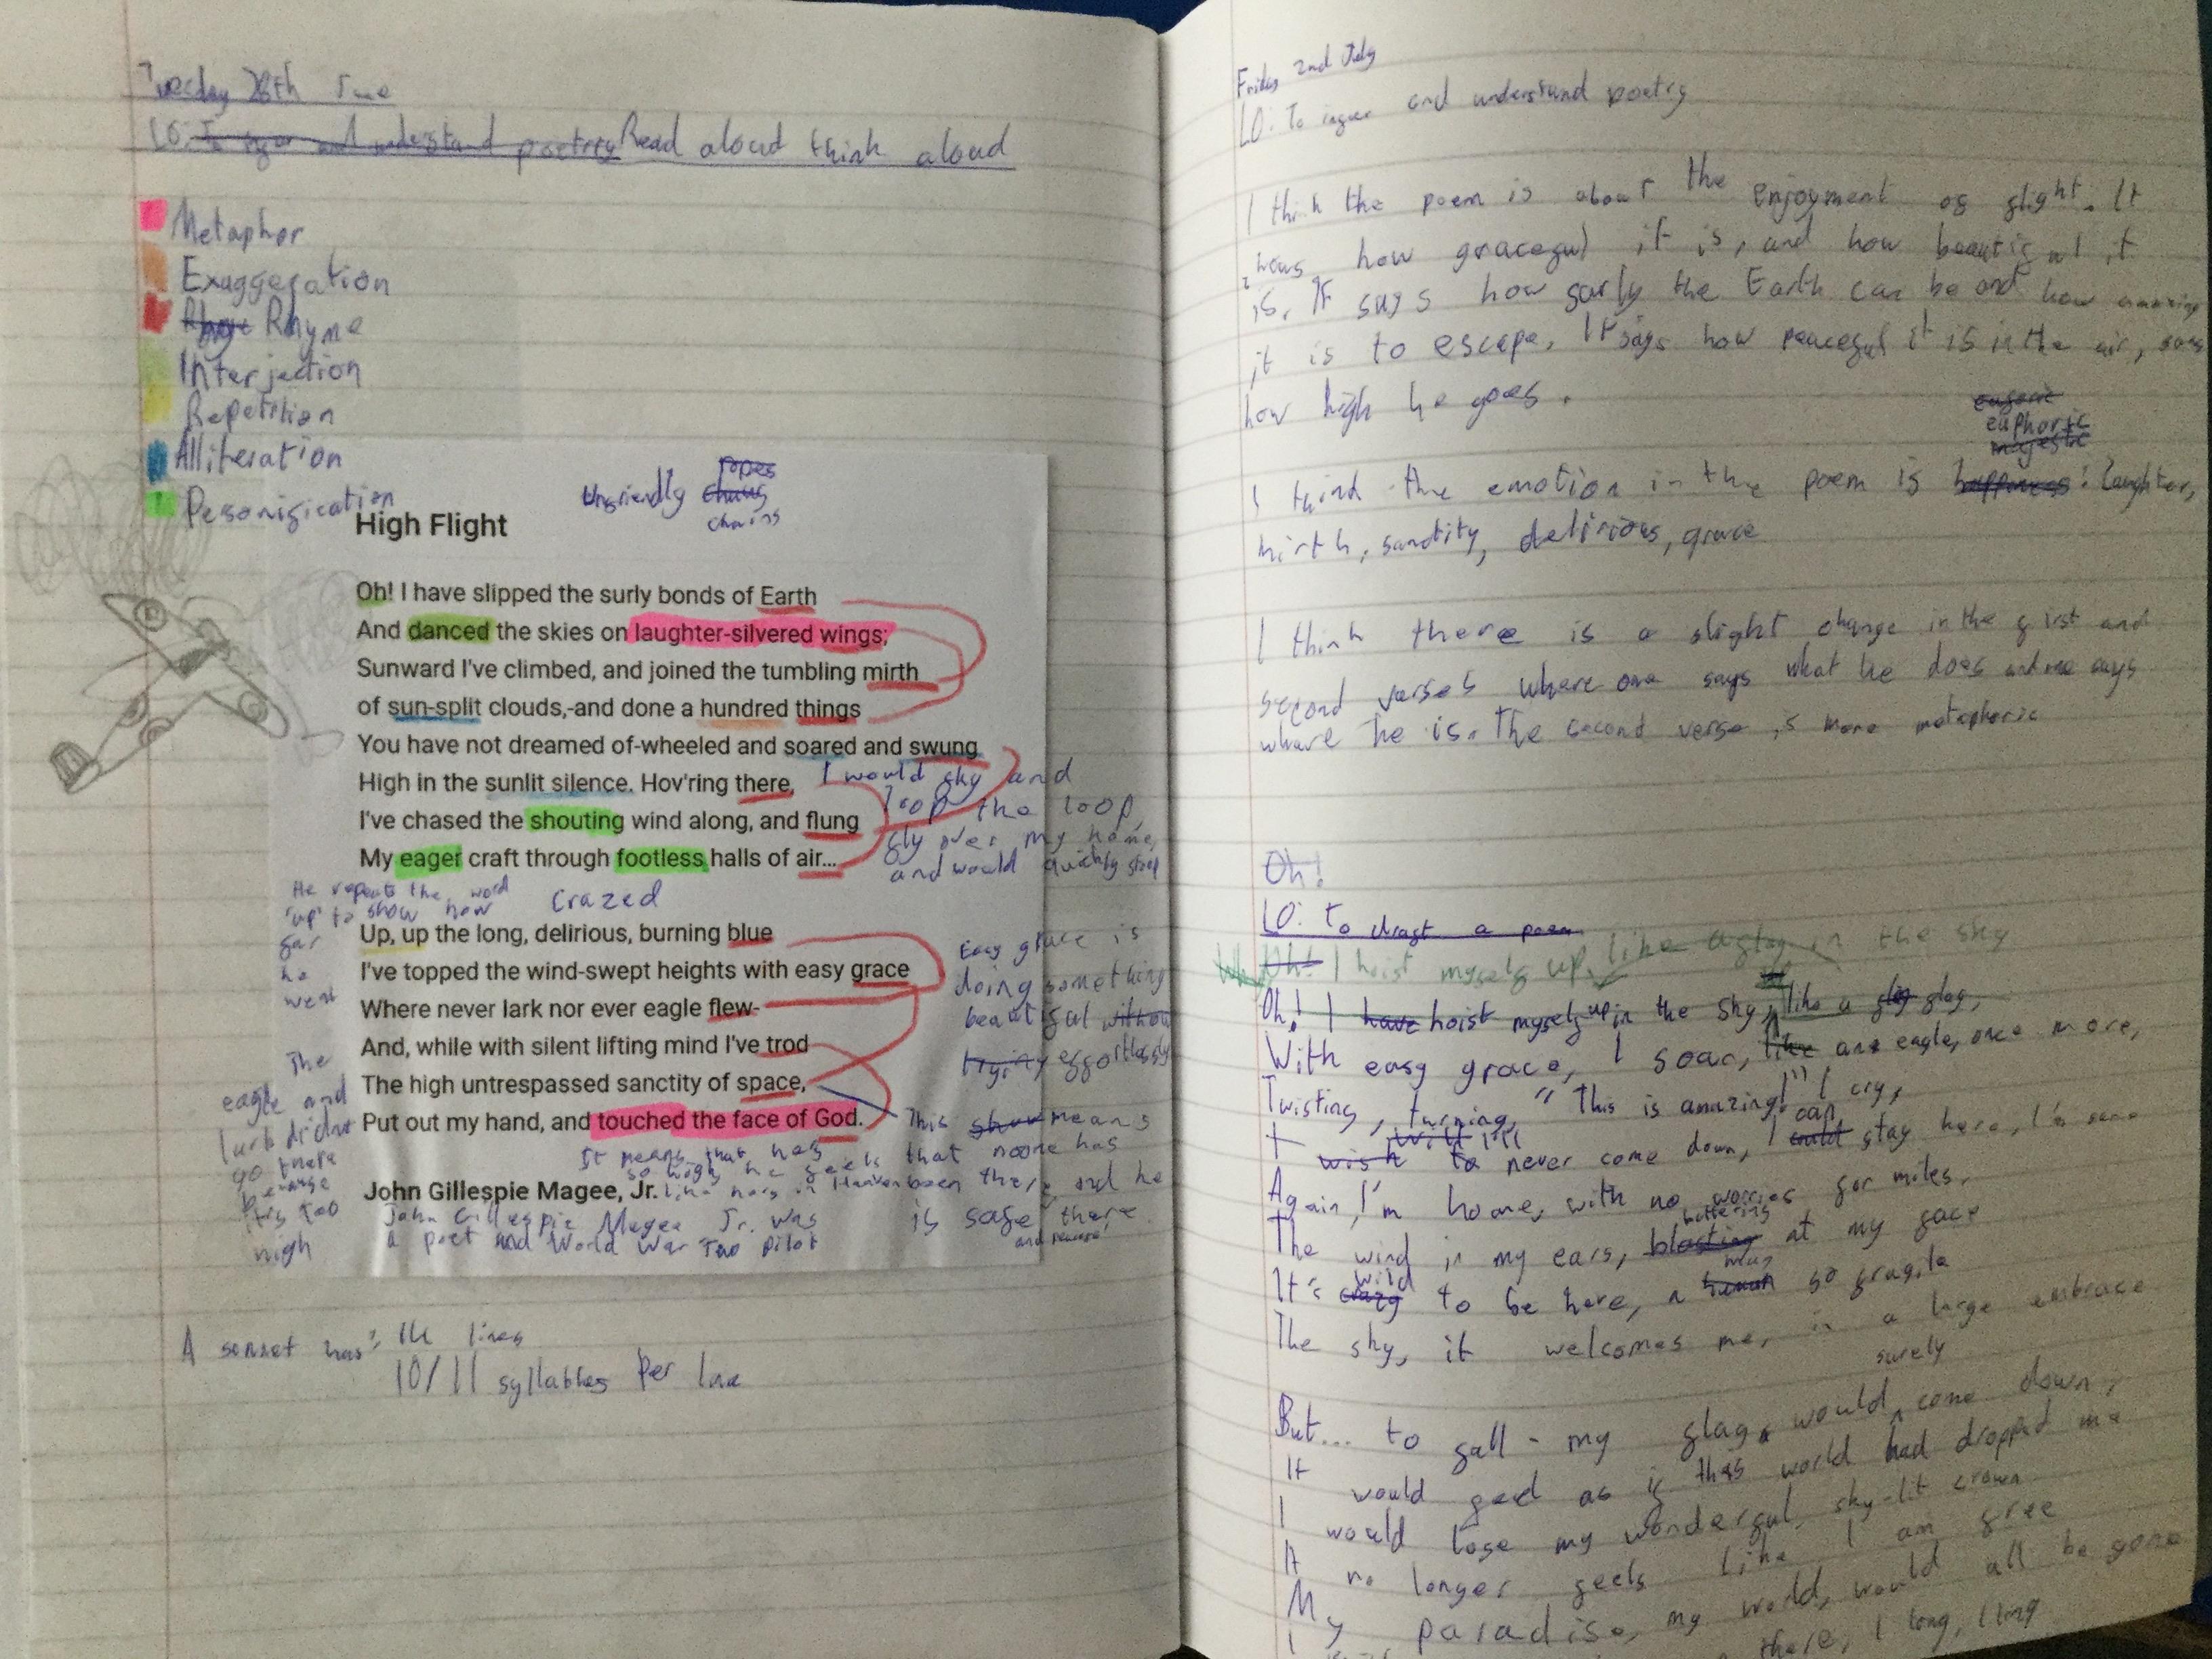 Tuesday 28th June
LO: To infer and understand poetry Read aloud think aloud
Metaphor
Exaggeration
Rhyme
Interjection
Repetition
Alliteration
Pesonification
Unfriendly ropes
chains
chains
High Flight
Oh! I have slipped the surly bonds of Earth
And danced the skies on laughter-silvered wings;
Sunward I've climbed, and joined the tumbling mirth
of sun-split clouds,-and done a hundred things
You have not dreamed of-wheeled and soared and swung
High in the sunlit silence. Hov'ring there,
I've chased the shouting wind along, and flung
My eager craft through footless halls of air...
I would sky and
loop the loop,
fly over my home,
and would quickly
He repeats the word
'up' to show how
far
he
went
Crazed
Up, up the long, delirious, burning blue
I've topped the wind-swept heights with easy grace
Where never lark nor ever eagle flew-
And, while with silent lifting mind I've trod
The high untrespassed sanctity of space,
Put out my hand, and touched the face of God.
Easy grace is
doing something
beautiful without
trying effortlessly
The
eagle and
lark didnt
go there
because
it's too
high
This show means
that noone has
been there and he
is safe there
It means that hes
so high he feels
like hes in Heaven
John Gillespie Magee, Jr.
John Gillespie Magee Jr. was
a poet and World War Two pilot
A sonnet has: 14 lines
10/11 syllables per line
Friday 2nd July
LO: To infer and understand poetry
I think the poem is about the enjoyment of flight. It
shows how graceful it is, and how beautiful it
is. It says how surly the Earth can be and how amazing
it is to escape. It says how peaceful it is in the air, says
how high he goes.
euphoric
majestic
I think the emotion in the poem is happiness: laughter,
mirth, sanctity, delirious, grace
I think there is a slight change in the first and
second verses where one says what he does and one says
where he is. The second verse is more metaphoric
Oh!
LO: to draft a poem
Oh! I hoist myself up, like a flag in the sky
Oh! I have hoist myself up in the sky, like a flag,
With easy grace, I soar, like an eagle, once more,
Twisting, turning, "This is amazing!" I cry,
I wish to will I'll never come down, I could can stay here, I'm sure
Again, I'm home, with no worries for miles.
The wind in my ears, blasting buffering at my face
It's crazy wild to be here, a human so fragile
The sky, it welcomes me, in a large embrace
But... to fall - my flag would surely come down,
It would feel as if this world had dropped me
I would lose my wonderful, sky-lit crown
It no longer feels like I am free
My paradise, my world, would all be gone
there, I long, I long